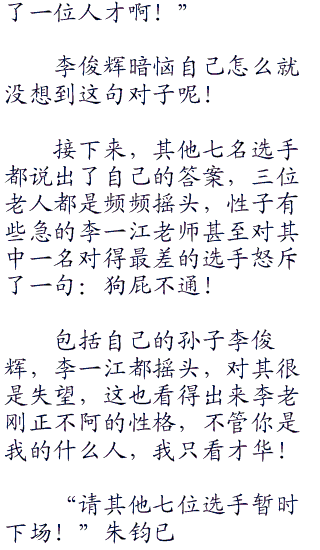 了一位人才啊！”
李俊辉暗恼自己怎么就
没想到这句对子呢！
接下来，其他七名选手
都说出了自己的答案，三位
老人都是频频摇头，性子有
些急的李一江老师甚至对其
中一名对得最差的选手怒斥
了一句：狗屁不通！
包括自己的孙子李俊
辉，李一江都摇头，对其很
是失望，这也看得出来李老
刚正不阿的性格，不管你是
我的什么人，我只看才华！
“请其他七位选手暂时
下场！”朱钧已